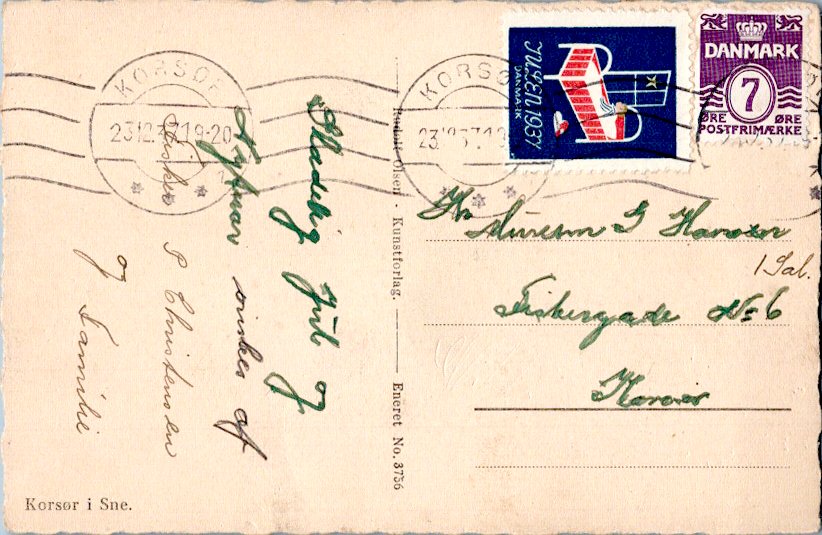 KORSØR
23.12.37.19-20
KORSØ
23.12.37.19
JULEN.1937
DANMARK
DANMARK
7
ØRE ØRE
POSTFRIMÆRKE
Glædelig Jul og
Nytaar ønskes af
ønskes
P Christensen
og Familie
Rudolf Olsen - Kunstforlag.
Eneret No. 3756
Hr Murersv G Hansen
1 Sal.
Fiskergade No 6
Korsør
Korsør i Sne.